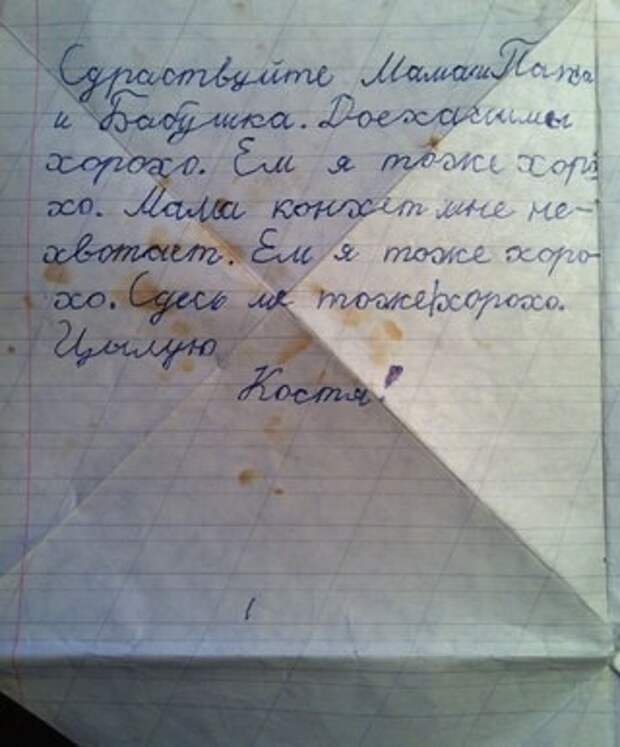 Сдраствуйте Мама и Папа
и Бабушка. Доехали мы
хорохо. Ем я тоже хоро
хо. Мама конхет мне не-
хвотает. Ем я тоже хоро-
хо. Сдесь мя тоже хорохо.
Цылую
Костя!